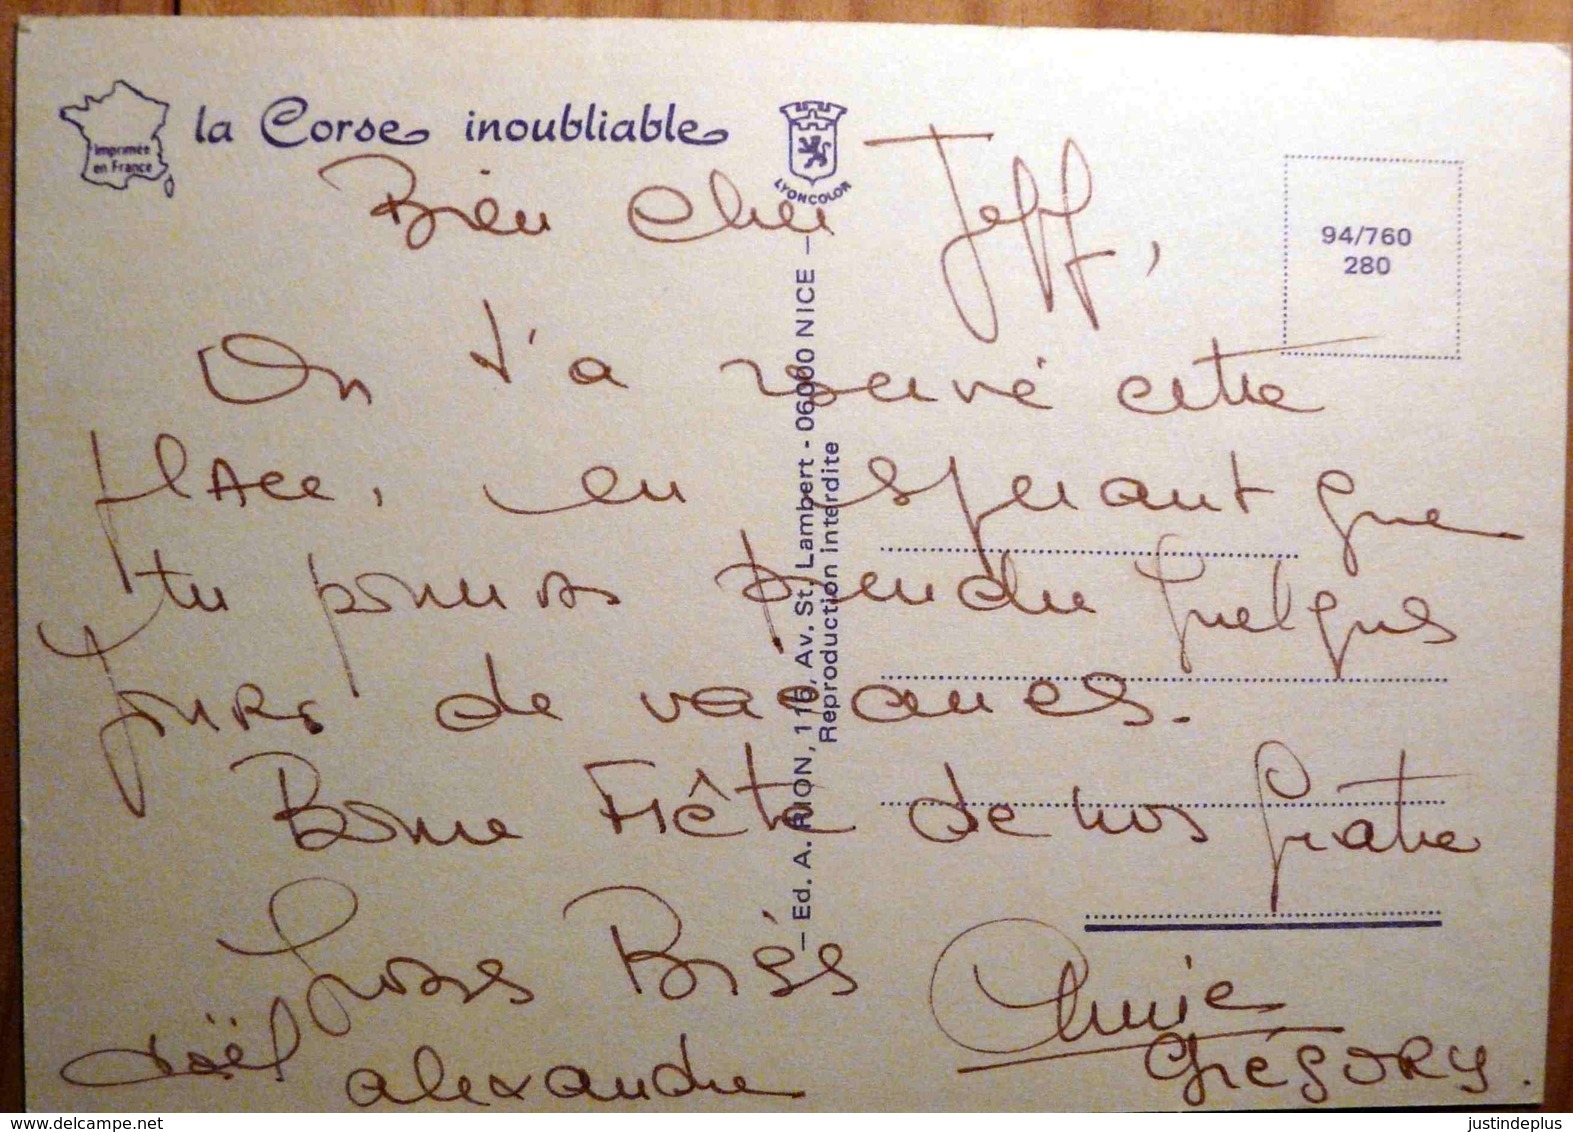 Imprimée
en France
la Corse inoubliable
LYONCOLOR
94/760
280
Bien cher Jeff,
On t'a réservé cette
place, en espérant que
tu pourras prendre quelques
jours de vacances.
Bonne Fête de nos quatre
Gross Bisés
Annie
Joël Alexandre
GRÉGORY.
— Ed. A. RION, 116, Av. St. Lambert - 06000 NICE —
Reproduction interdite
delcampe.net
justindeplus